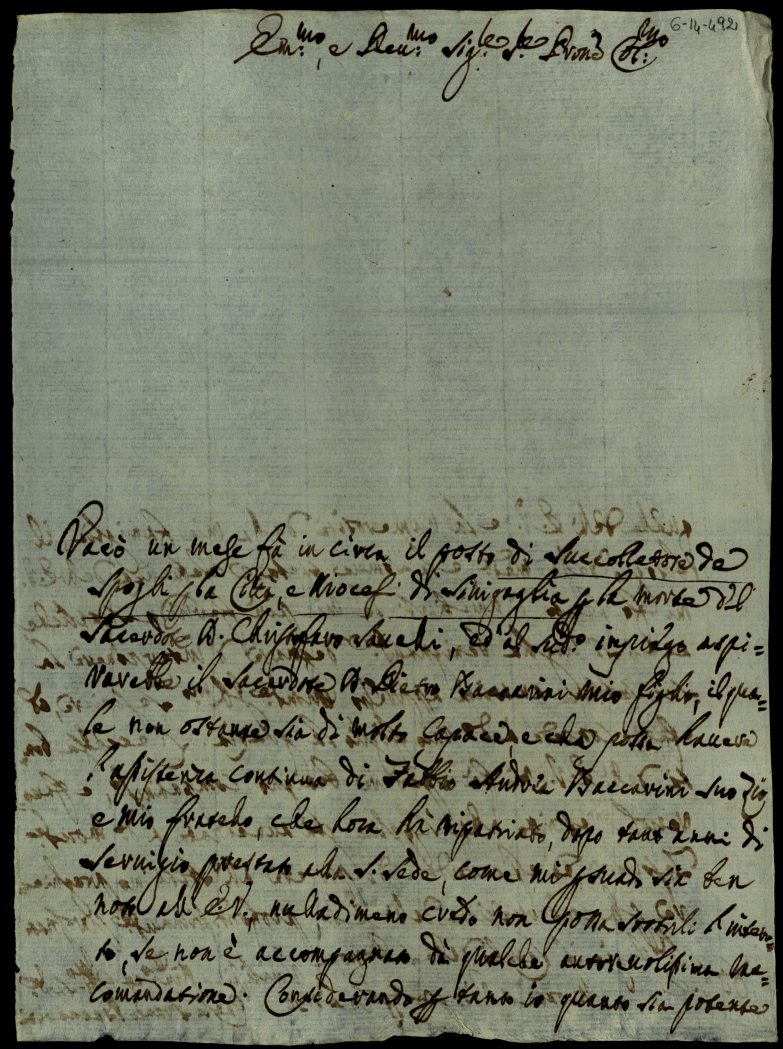 6-14-492
Em.mo, e Reu.mo Sig.re S.re Pron.e Col.mo
Vacò un mese fà in circa il posto di Succollettore de
Spogli p la Città, e Diocesi di Sinigaglia p la morte del
Sacerdote D. Christofaro Sacchi, ed al sud.o impiego aspi=
rarebbe il Sacerdote D. Pietro Baccarini mio figlio, il qua=
le non ostante sia di molto capace, e che possa hauere
l'assistenza continua di Fabbio Andrea Baccarini suo Zio
e mio fratello, che hora hà ripatriato, dopo tant'anni di
Seruigio prestato alla S. Sede, come mi psuado sia ben
noto all'E.V., nulladimeno credo non possa sortirli l'inten=
to, se non è accompagnato dà qualche autoreuolissima rac=
comandatione. Considerando p tanto io quanto sia potente